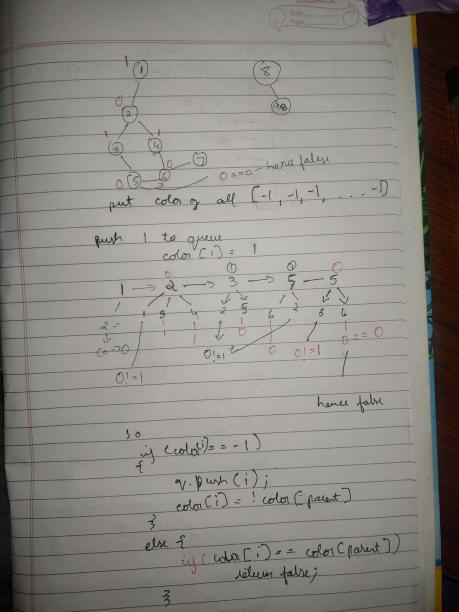 1 1 8
0
2 98
1 1
3 4
0 7
0 5 6 0==0 hence false
put color of all [-1, -1, -1, .... -1]
push 1 to queue
color [i] = 1
0 1 1 0
1 → 2 → 3 → 5 — 5
2 1 3 4 2 5 6 2 3 6
1 1 0 0 0 == 0
0!=1 0!=1 0!=1
hence false
so
if (color[i] == -1)
{
q.push(i);
color(i) = !color[parent]
}
else {
if (color[i] == color[parent])
return false;
}